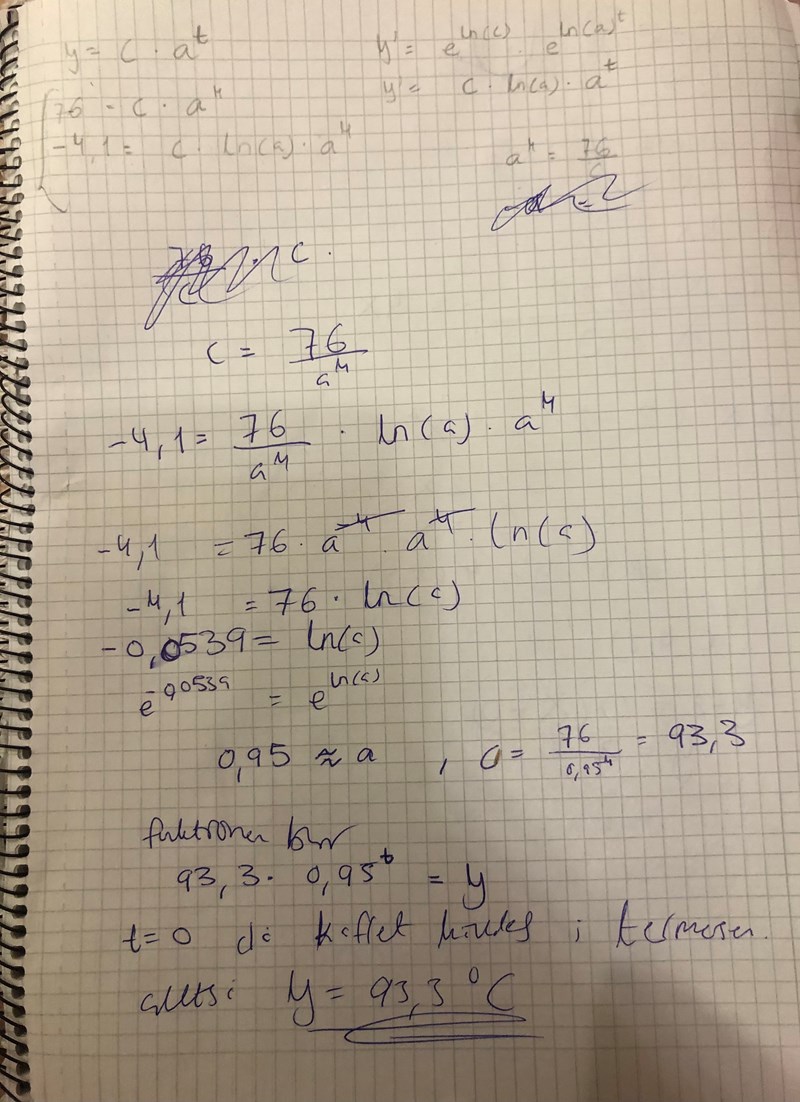 y = C · a^t
y' = e^ln(c) · e^ln(a)^t
y' = C · ln(a) · a^t
76 = C · a^4
-4,1 = C · ln(a) · a^4
a^4 = 76/C
C.
C = 76/a^4
-4,1 = 76/a^4 · ln(a) · a^4
-4,1 = 76 · a^-4 · a^4 · ln(a)
-4,1 = 76 · ln(a)
-0,0539 = ln(a)
e^-0,0539 = e^ln(a)
0,95 ≈ a , C = 76/0,95^4 = 93,3
funktionen blir
93,3 · 0,95^t = y
t=0 då kaffet hälldes i termosen.
alltså y = 93,3 °C